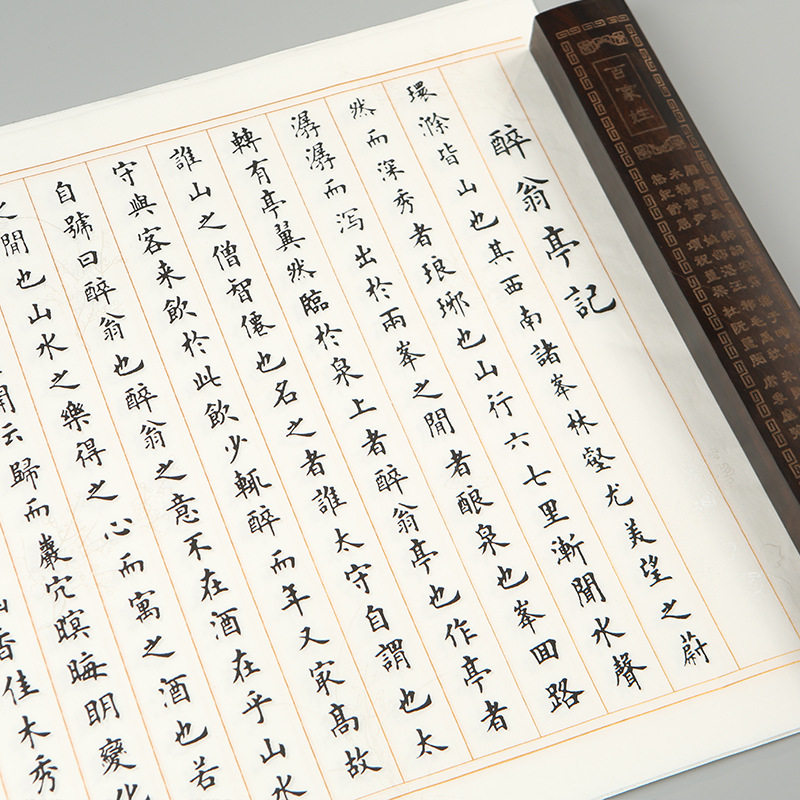 醉翁亭記
環滁皆山也其西南諸峯林壑尤美望之蔚
然而深秀者琅琊也山行六七里漸聞水聲
潺潺而泻出於兩峯之閒者酿泉也峯囬路
轉有亭翼然臨於泉上者醉翁亭也作亭者
誰山之僧智僊也名之者誰太守自謂也太
守與客来飲於此飲少輒醉而年又冣髙故
自號曰醉翁也醉翁之意不在酒在乎山水
之閒也山水之樂得之心而寓之酒也若
開云歸而巖穴暝晦明變化
香佳木秀
百家姓